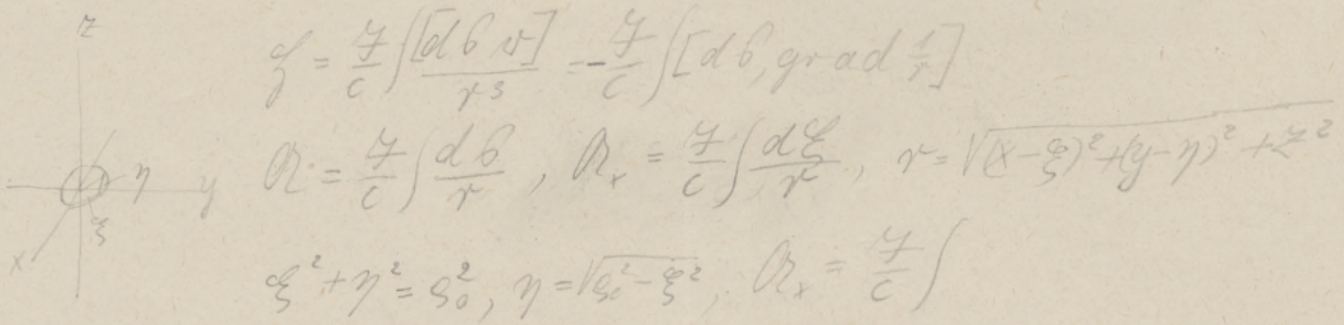 z
𝔥 = J/c ∫ [d𝔰 𝔯]/r³ = -J/c ∫ [d𝔰, grad 1/r]
η y 𝔄 = J/c ∫ d𝔰/r , 𝔄ₓ = J/c ∫ dξ/r , r = √((x-ξ)²+(y-η)²+z²)
x ξ
ξ²+η² = ρ₀², η = √(ρ₀²-ξ²), 𝔄ₓ = J/c ∫